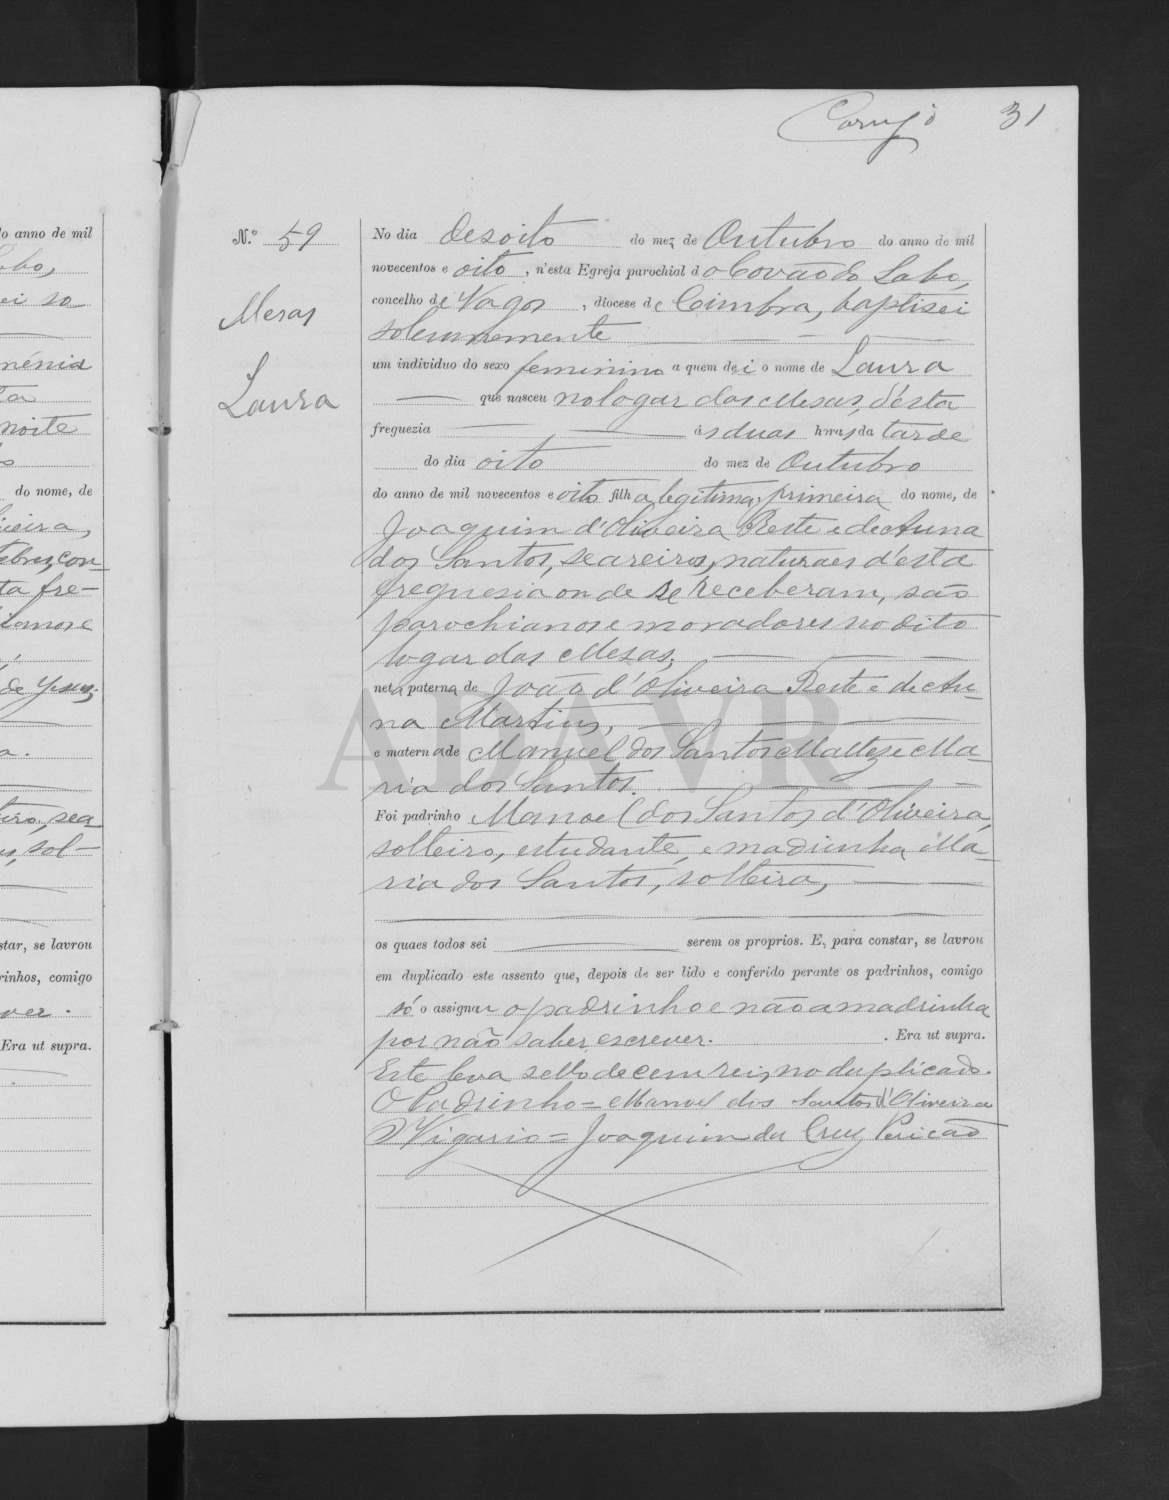 31
N.º 59
Mesas
Laura
No dia desoito do mez de Outubro do anno de mil
novecentos e oito, n'esta Egreja parochial do Covão do Lobo,
concelho de Vagos, diocese de Coimbra, baptisei
solemnemente
um individuo do sexo feminino a quem dei o nome de Laura
que nasceu no logar das Mesas, d'esta
freguezia ás duas horas da tarde
do dia oito do mez de Outubro
do anno de mil novecentos e oito filha legitima, primeira do nome, de
Joaquim d'Oliveira Reste e de Anna
dos Santos, seareiros, naturaes d'esta
freguesia onde se receberam, são
parochianos e moradores no dito
logar das Mesas;
neta paterna de João d'Oliveira Reste e de An-
na Martins,
e materna de Manuel dos Santos Malteze Ma-
ria dos Santos.
Foi padrinho Manoel dos Santos d'Oliveira,
solteiro, estudante, e madrinha Ma-
ria dos Santos, solteira,
os quaes todos sei serem os proprios. E, para constar, se lavrou
em duplicado este assento que, depois de ser lido e conferido perante os padrinhos, comigo
só o assignou o padrinho e não a madrinha
por não saber escrever. . Era ut supra.
Este leva sello de cem reis no duplicado.
O Padrinho = Manuel dos Santos d'Oliveira
O Vigario = Joaquim da Cruz Pericão
ADAVR
do anno de mil
Lobo,
noite
do nome, de
ta fre-
de Jesus;
sol-
star, se lavrou
rinhos, comigo
ver.
Era ut supra.